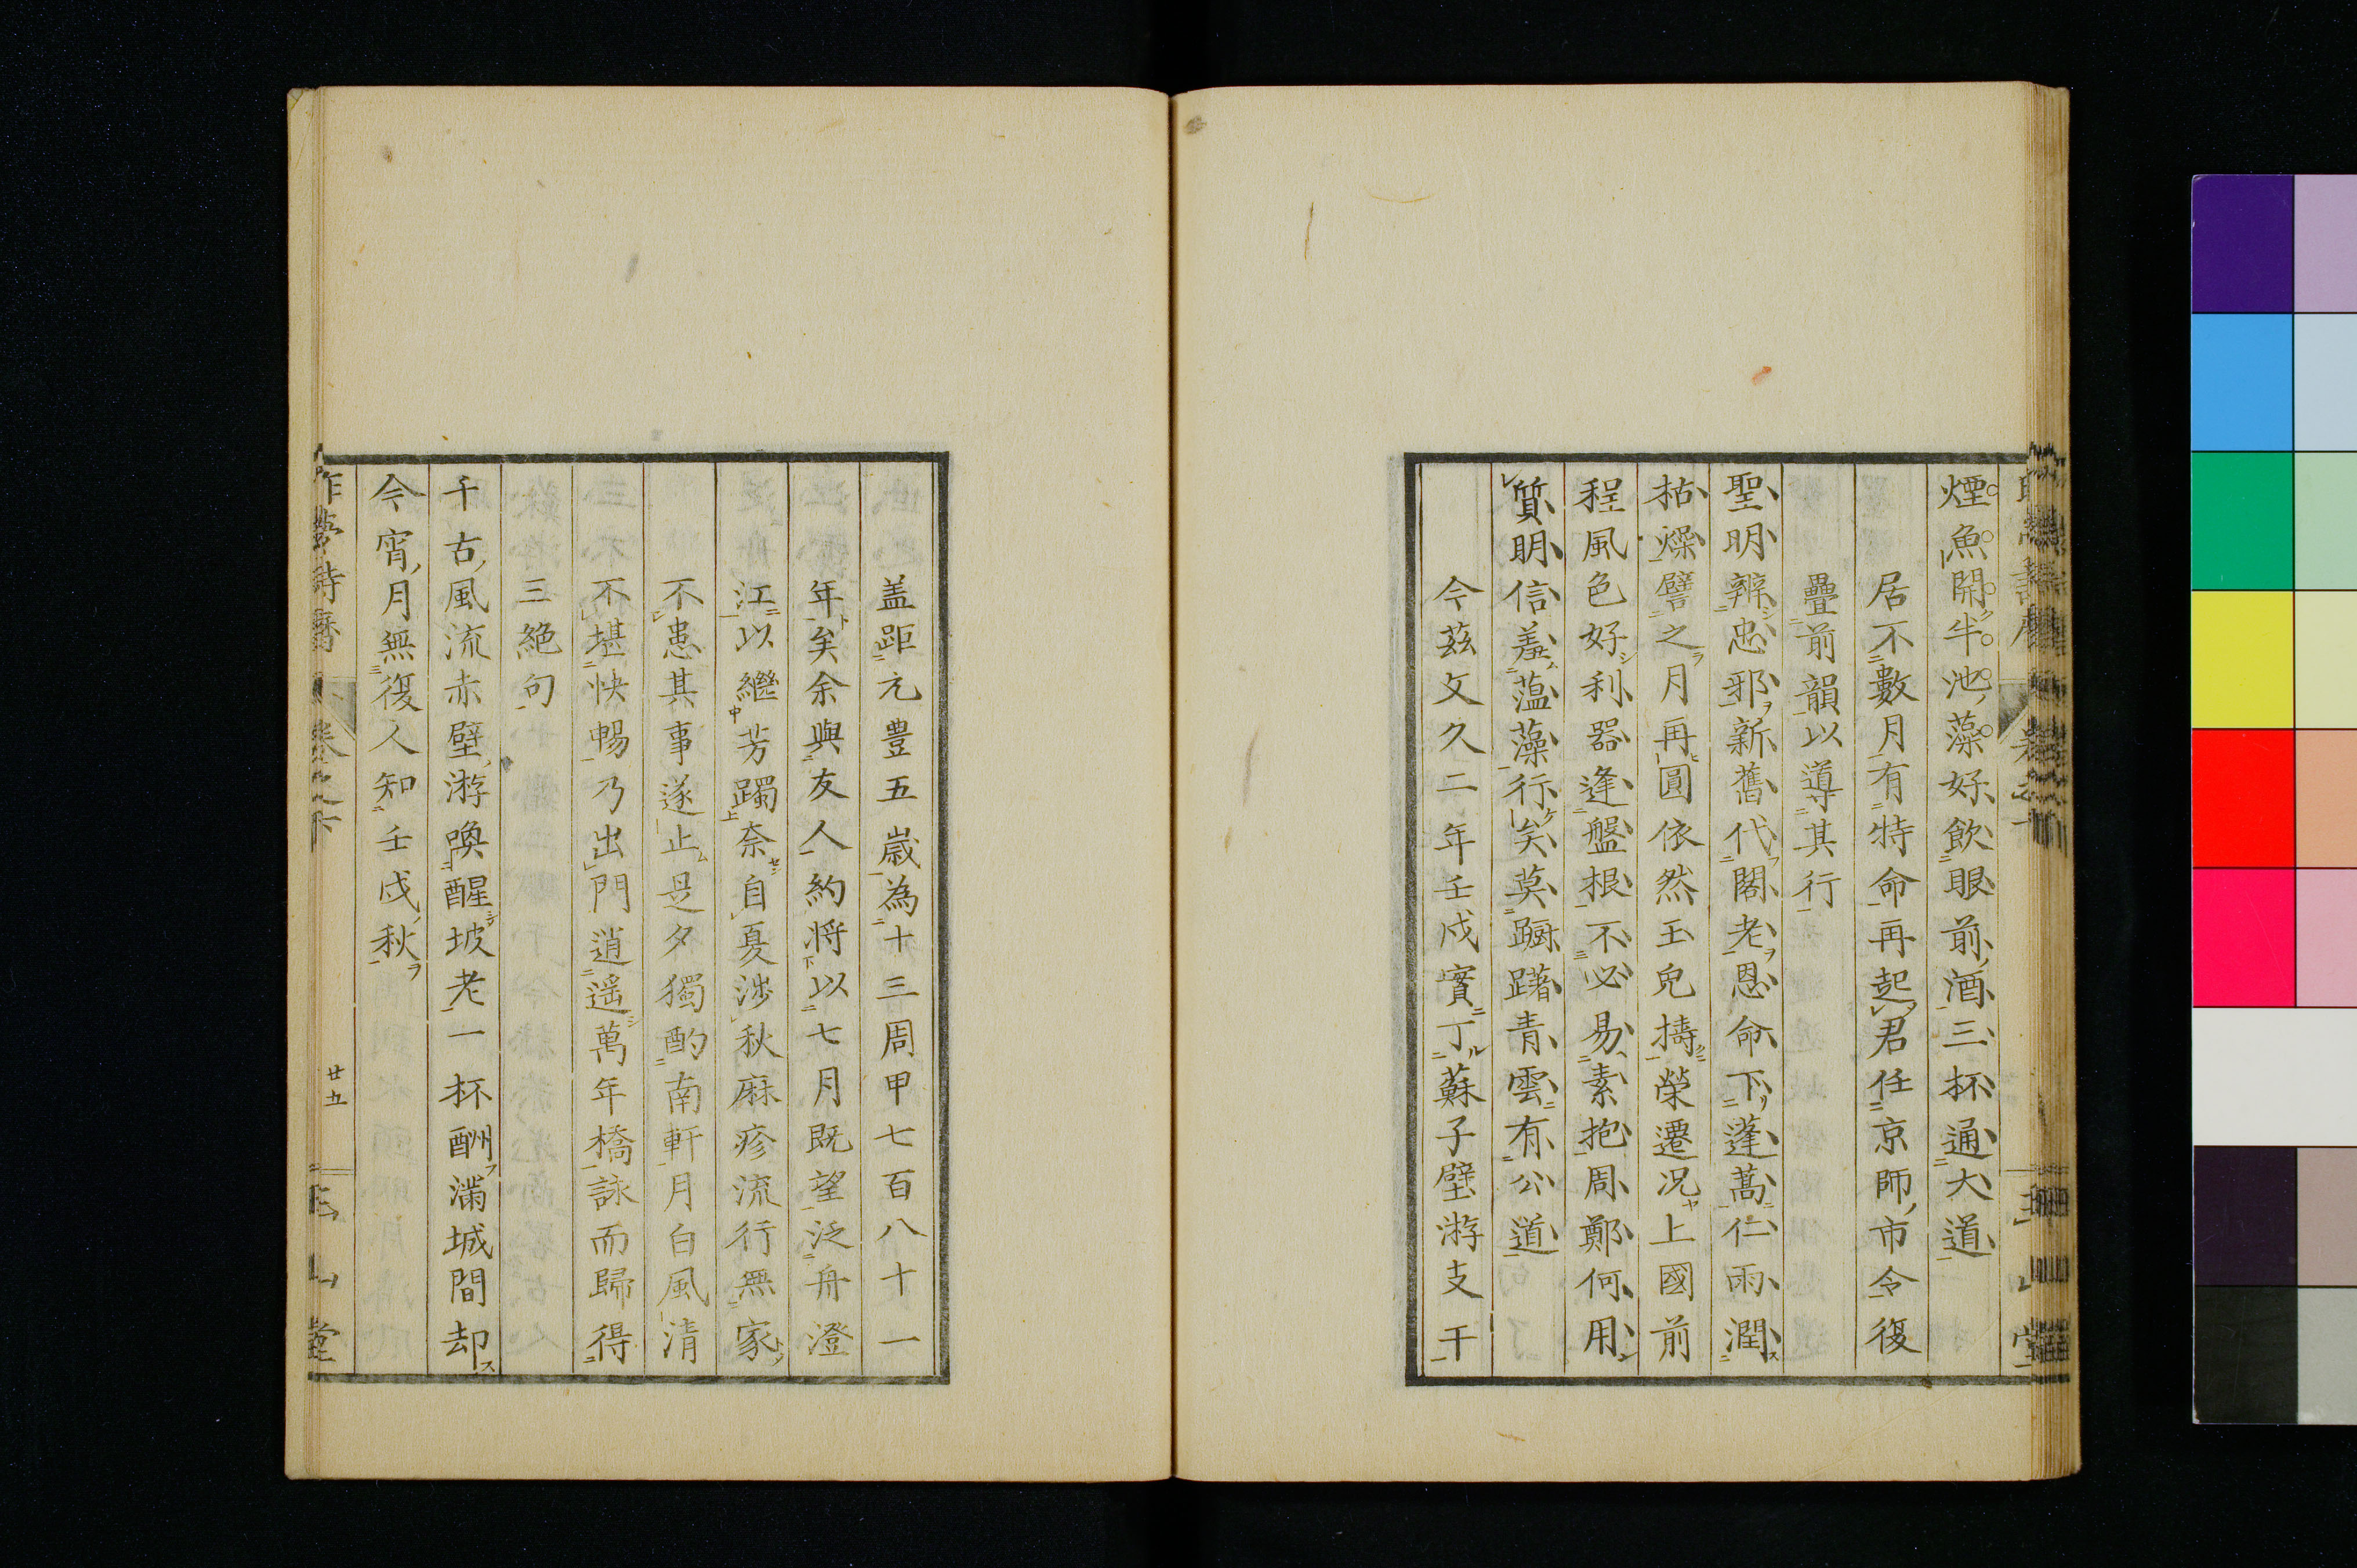 煙魚開半池藻好飲眼前酒三杯通大道
居不數月有特命再起君任京師市令復
疊前韻以導其行
聖明辨忠邪新舊代閣老恩命下蓬蒿仁雨潤
枯燥譬之月再圓依然玉兔擣榮遷况上國前
程風色好利器逢盤根不必易素抱周鄭何用
質明信羞薀藻行矣莫躕躇青雲有公道
今茲文久二年壬戌實丁蘇子壁游支干
盖距元豊五歳為十三周甲七百八十一
年矣余與友人約将以七月既望泛舟澄
江以繼芳躅奈自夏渉秋麻疹流行無家
不患其事遂止是夕獨酌南軒月白風清
不堪快暢乃出門逍遥萬年橋詠而歸得
三絶句
千古風流赤壁游喚醒坡老一杯酬滿城間却
今宵月無復人知壬戌秋
廿五